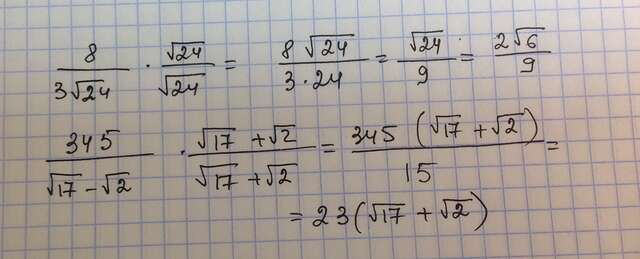 8/(3√24) · √24/√24 = 8√24/(3·24) = √24/9 = 2√6/9
345/(√17-√2) · (√17+√2)/(√17+√2) = 345(√17+√2)/15 =
= 23(√17+√2)